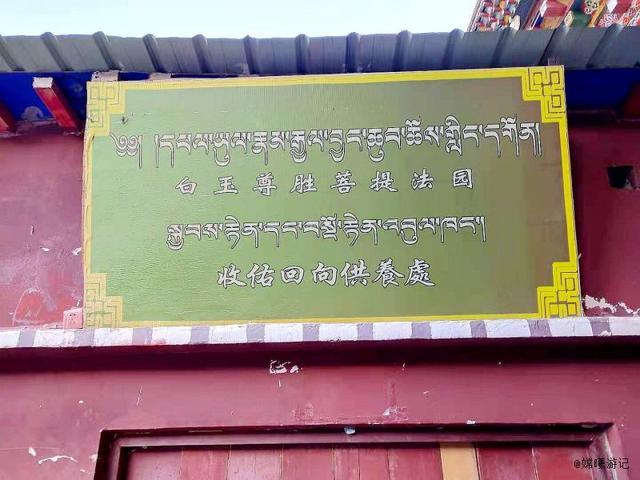 ༄༅། །དཔལ་ཡུལ་རྣམ་རྒྱལ་བྱང་ཆུབ་ཆོས་གླིང་དགོན།
白玉尊胜菩提法园
སྐྱབས་རྟེན་དང་བསྔོ་རྟེན་འབུལ་ཁང་།
收估回向供養處
@嫦曦游记